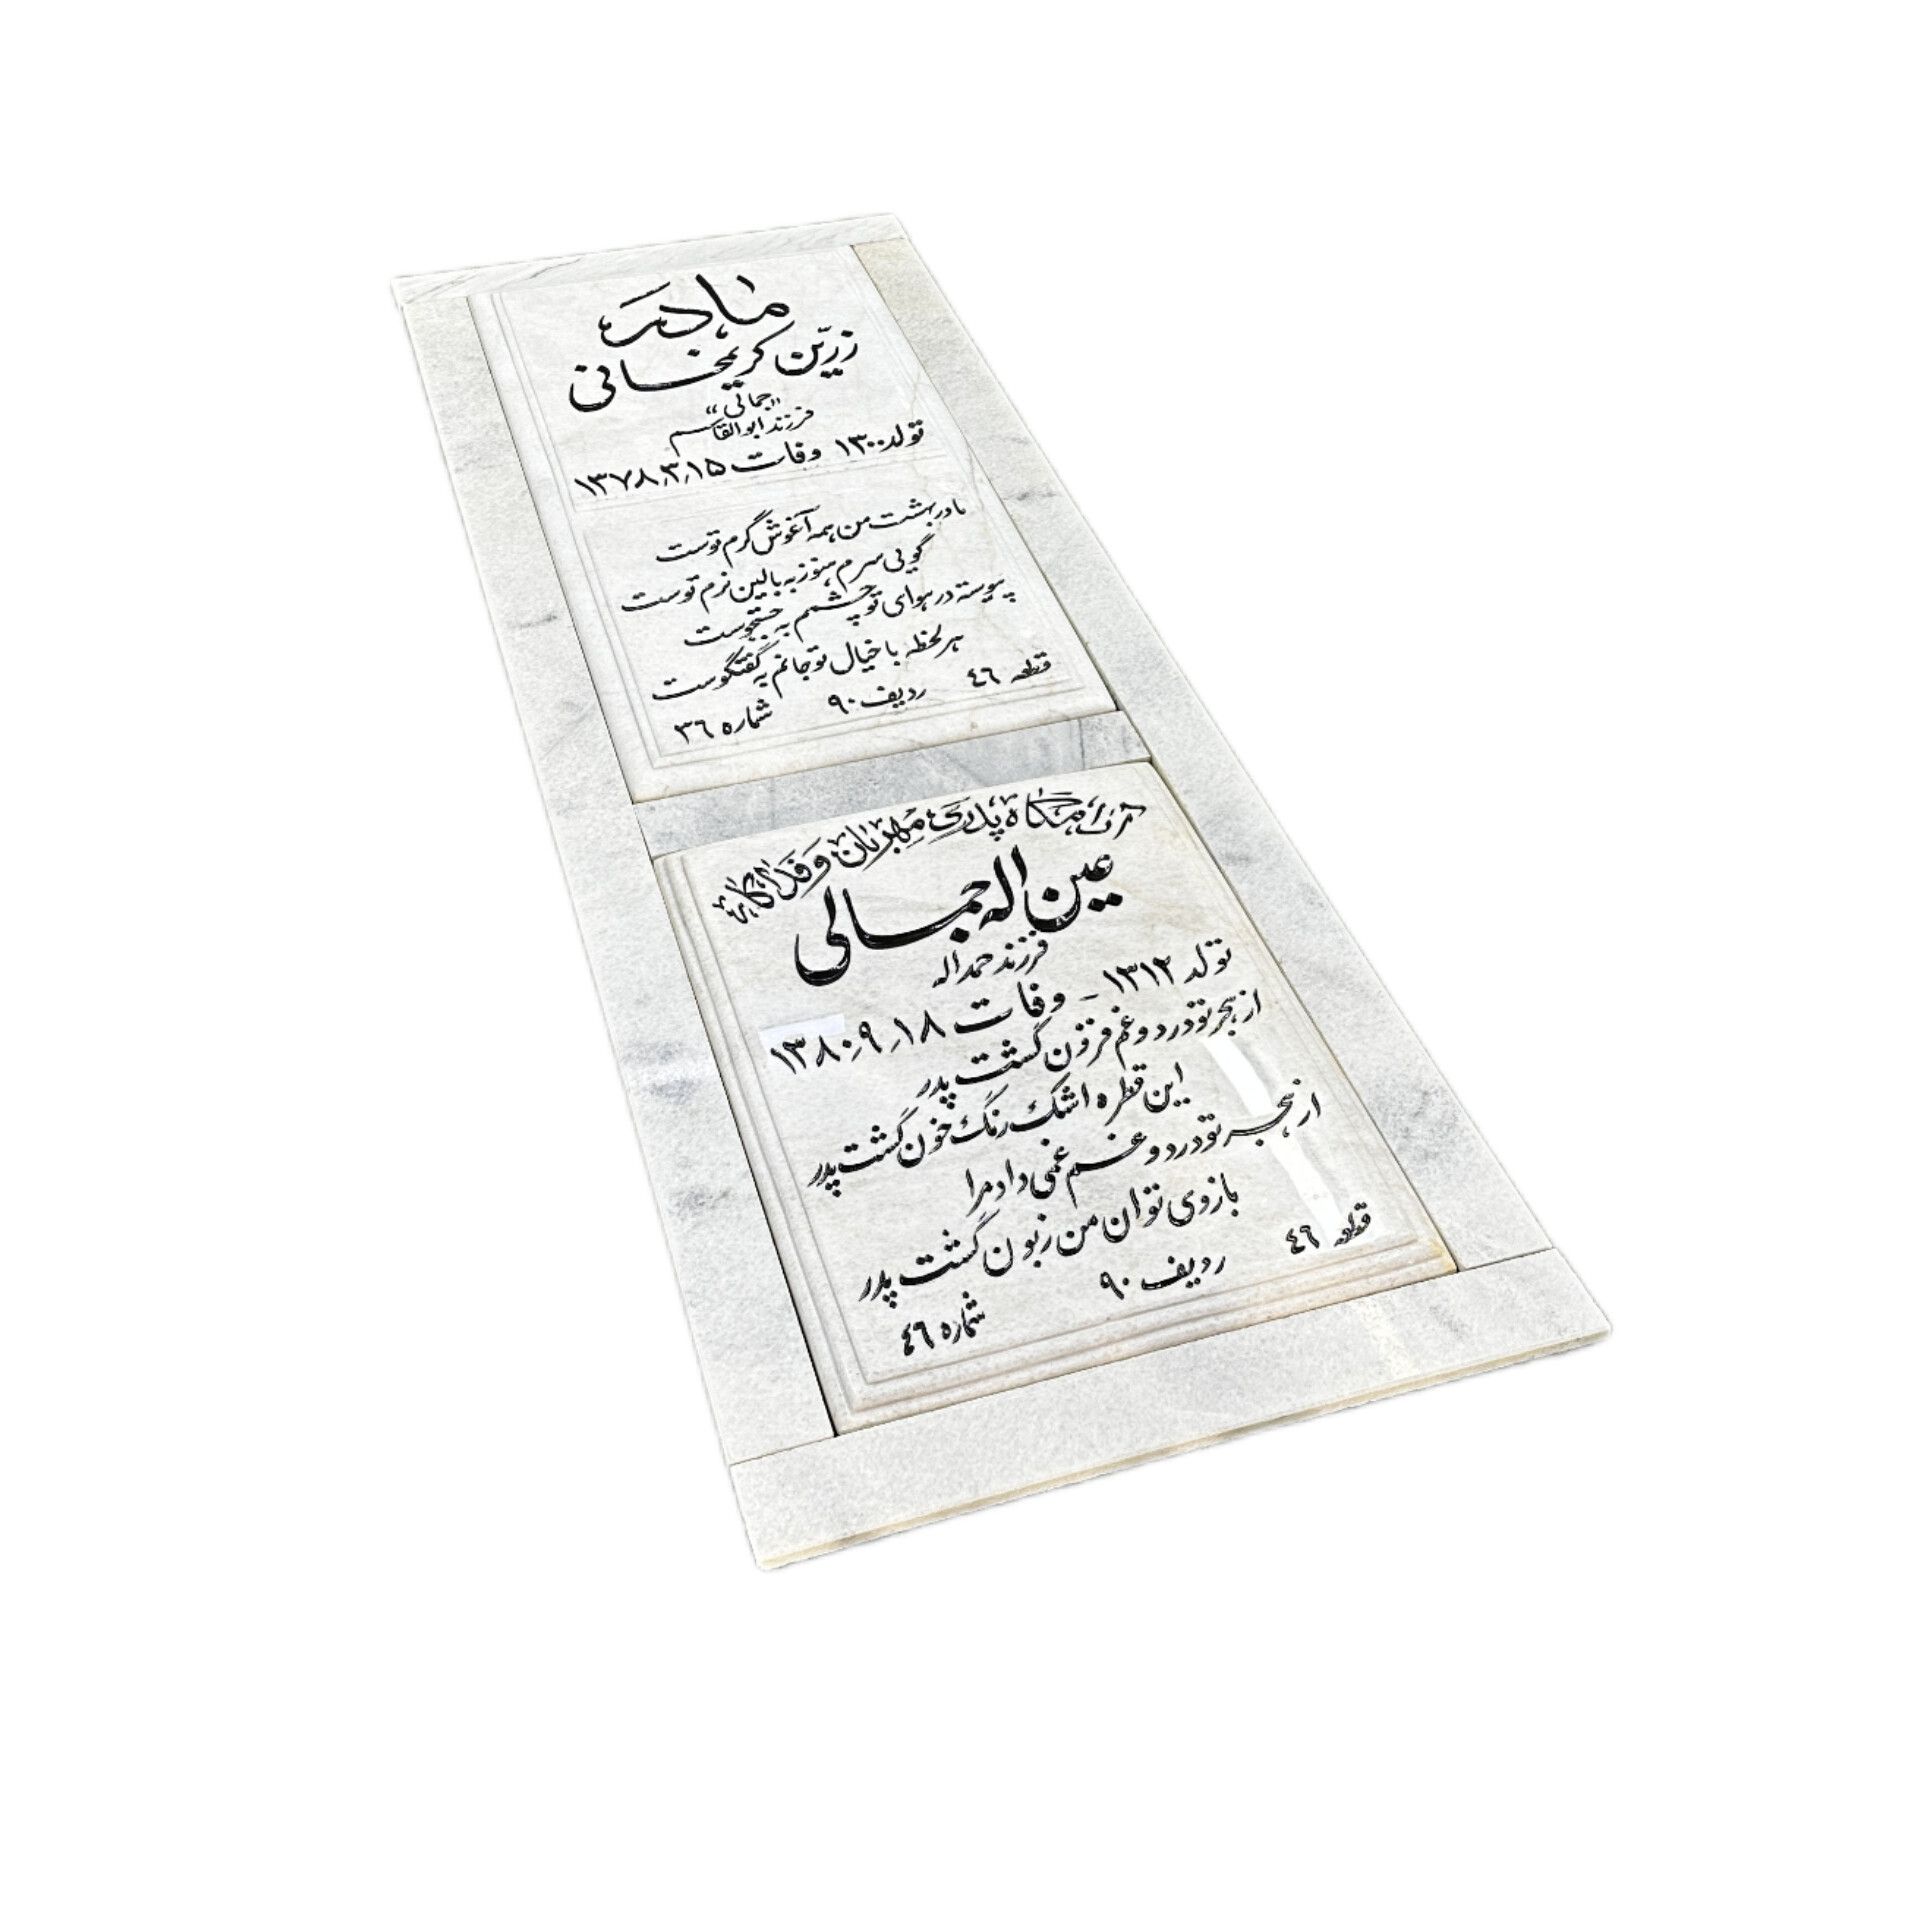 مادر
زرّین کریمخانی
"جمالی"
فرزند ابوالقاسم
تولد ۱۳۰۰ وفات ۱۳۷۸٫۳٫۱۵
مادر بهشت من همه آغوش گرم توست
گویی سرم هنوز به بالین نرم توست
پیوسته در هوای تو چشمم به جستجوست
هر لحظه با خیال تو جانم به گفتگوست
قطعه ٤٦ ردیف ۹۰ شماره ۳٦
آرامگاه پدری مهربان و فداکار
عین اله جمالی
فرزند حمداله
تولد ۱۳۱۲ - وفات ۱۳۸۰٫۹٫۱۸
از هجر تو درد و غم فزون گشت پدر
این قطره اشک رنگ خون گشت پدر
از هجر تو درد و غم غمی داد مرا
بازوی توان من زبون گشت پدر
قطعه ٤٦ ردیف ۹۰ شماره ٤٦